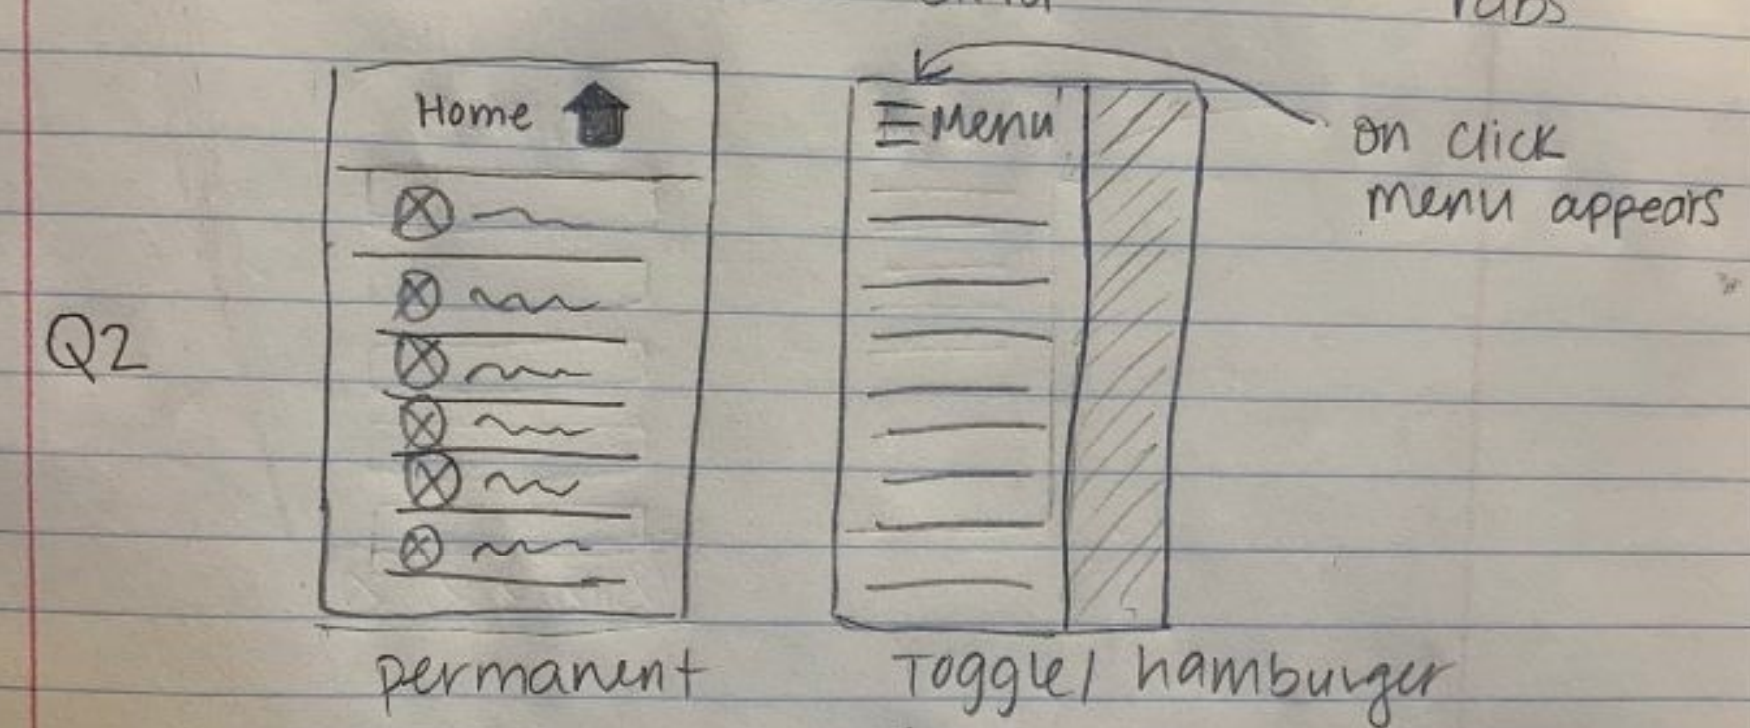 Tabs
Home
Menu
on click
menu appears
Q2
permanent
Toggle/ hamburger